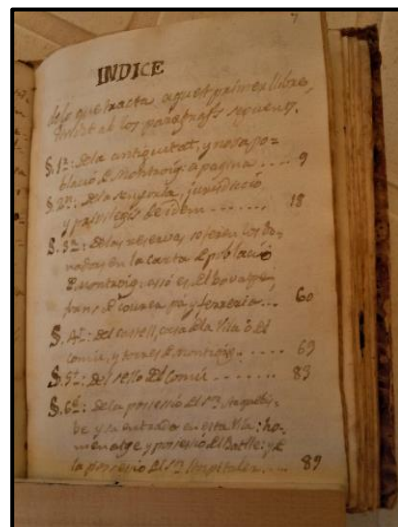 7
INDICE
dels que tracta aquest primer llibre,
dividit ab los paragrafs seguents.
§. 1ª: De la antiguitat, y nova po-
blació de Montroig: a pagina .... 9
§. 2ª: De la senyoria, jurisdicció,
y privilegis de idem ....... 18
§. 3ª: De las reservas
en la carta de població
de Montroig: assó es, del bovatge,
forns de courer pá y ferreria ... 60
§. 4ª: Del castell, casa de la Vila ó del
comú, y torres de Montroig ..... 63
§. 5ª: Del sello del Comú ....... 83
§. 6ª: De la possesió del Sr. Arquebis-
be y sa entrada en esta Vila: ho-
menatge y possesió del Batlle: y de
la possesió del Sr. Hospitaler .... 89